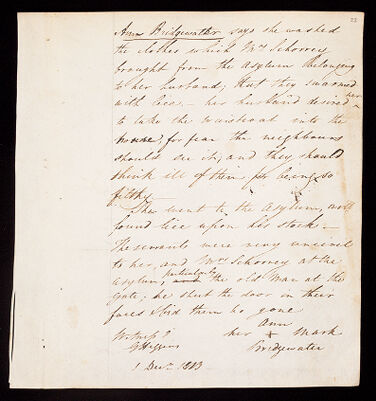 23
Ann Bridgewater says she washed
the clothes which Mrs Schorrey
brought from the Asylum belonging
to her husband; that they swarmed
with lice – her husband desired her
to take the waistcoat into the
house, for fear the neighbours
should see it, and they should
think ill of them for being so
filthy.
She went to the Asylum, and
found lice upon his stock –
The servants were very uncivil
to her, and Mrs Schorrey at the
Asylum, particularly the old Man at the
Gate; he shut the door in their
faces & bid them be gone
Ann
her + Mark
Bridgewater
Witness
G Higgins
1 Decr. 1813